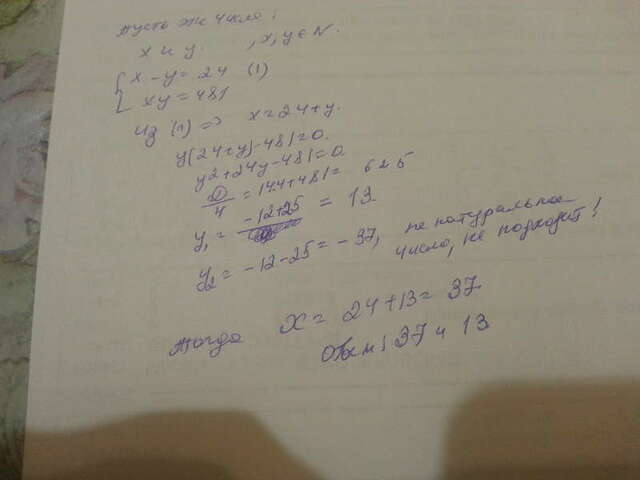 Пусть эти числа:
x и y. , x, y ∈ N.
x - y = 24 (1)
xy = 481
Из (1) => x = 24 + y.
y(24+y) - 481 = 0.
y² + 24y - 481 = 0
D/4 = 144 + 481 = 625
y₁ = -12+25 = 13.
y₂ = -12 - 25 = -37, не натуральное
число, не подходит!
Тогда x = 24 + 13 = 37
Ответ: 37 и 13